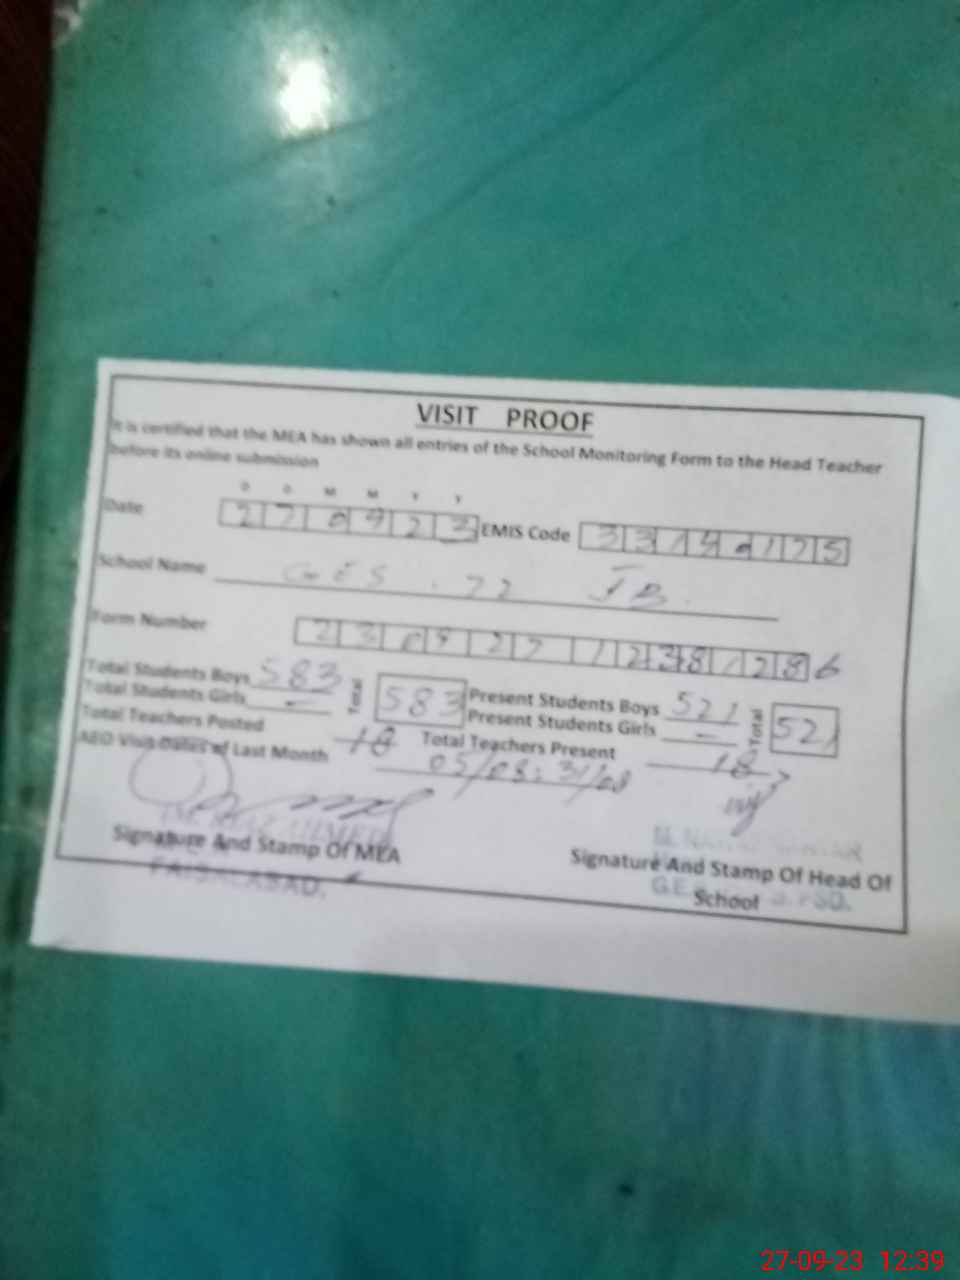 VISIT PROOF
It is certified that the MEA has shown all entries of the School Monitoring Form to the Head Teacher
before its online submission
D D M M Y Y
Date 270923 EMIS Code 33140175
School Name GES . 72 JB.
Form Number
Total Students Boys 583 Total 583 Present Students Boys 521 Total 521
Total Students Girls — Present Students Girls —
Total Teachers Posted 18 Total Teachers Present 18
AEO Visit Dates of Last Month 05/08; 31/08
Signature And Stamp Of MEA
FAISALABAD.
Signature And Stamp Of Head Of
School
27-09-23 12:39